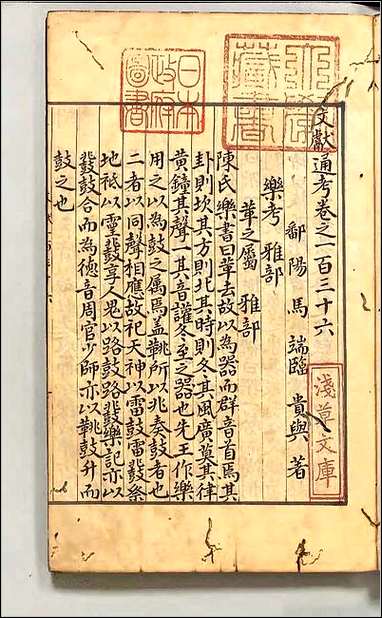 文獻通考卷之一百三十六
鄱陽馬端臨貴與著
樂考 雅部
革之屬 雅部
陳氏樂書曰革去故以為器而群音首焉其
卦則坎其方則北其時則冬其風廣莫其律
黃鐘其聲一其音讙冬至之器也先王作樂
用之以為鼓之屬焉蓋鞉所以兆奏鼓者也
二者以同聲相應故祀天神以雷鼓雷鼗祭
地祇以靈鼗享人鬼以路鼓路鼗樂記亦以
鼗鼓合而為德音周官少師亦以鞉鼓升而
鼓之也
林氏
藏書
日本
政府
圖書
淺草文庫